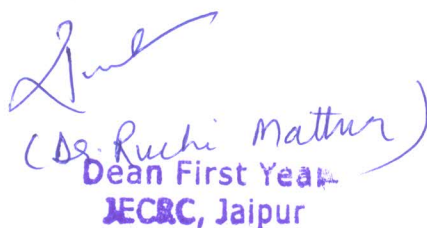 (Dr. Ruchi Mathur)
Dean First Year
JECRC, Jaipur